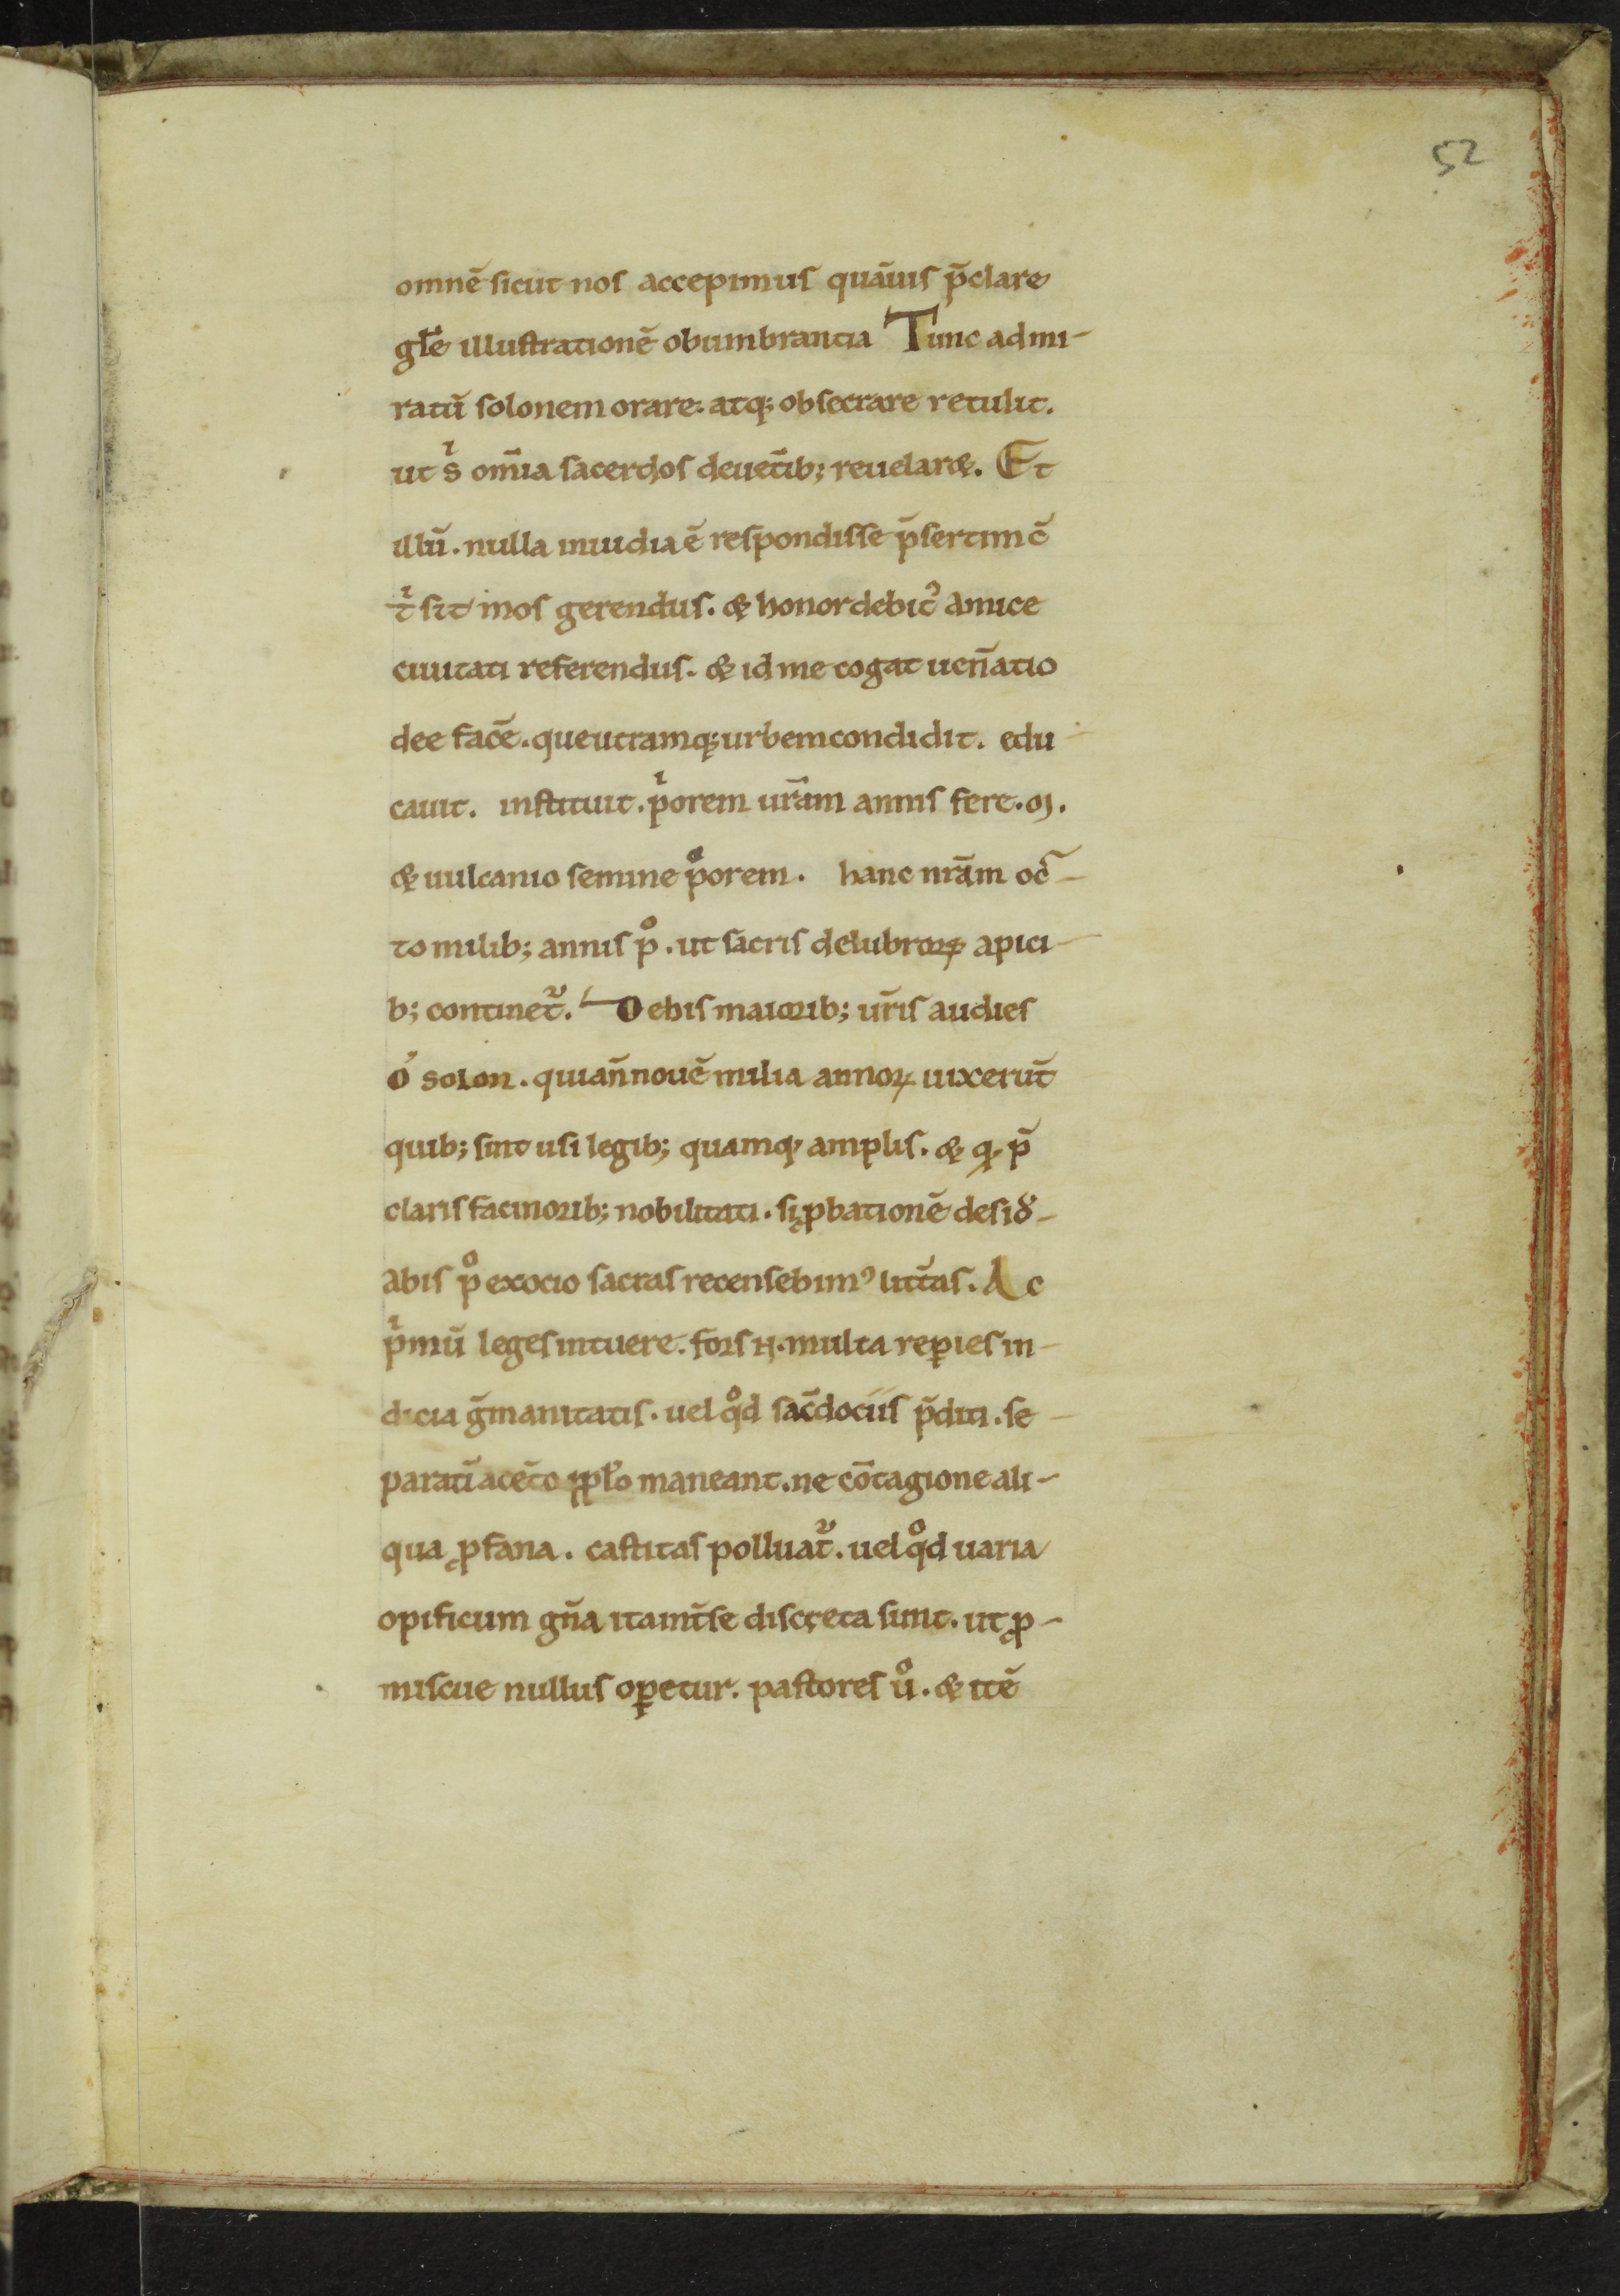 52
omnē sicut nos accepimus quāuis p̄clare
gl̄e illustrationē obumbrantia Tunc admi-
ratū solonem orare. atq; obsecrare retulit.
ut sⁱ om̄ia sacerdos deuet̄ib; reuelar&. Et
illū. nulla inuidia ē respondisse p̄sertim c̄
tⁱ sit mos gerendus. & honor debit᷒ amice
ciuitati referendus. & id me cogat uen̄atio
dee facē. que utramq; urbem condidit. edu
cauit. instituit. pⁱorem ur̄am annis fere. ϖ.
& uulcanio semine pͣorem. hanc nr̄am oc̄-
to milib; annis pͦ. ut sacris delubroꝝ apici-
b; continet᷑. De his maiorib; ur̄is audies
ó solon. qui an̄ nouē milia annoꝝ uixerūt
quib; sint usi legib; quamq; amplis. & q̄ p̄
claris facinorib; nobilitati. si ꝓbationē desid̄-
abis pͦ exocio sacras recensebim᷒ litt̄as. Ac
pⁱmū leges intuere. fors N. multa reꝑies in-
dicia ḡmanitatis. uel qͦd sac̄dociis p̄diti. se-
parati a cet̄o ppl̄o maneant. ne cōtagione ali-
qua ꝓfana. castitas polluat᷑. uel qͦd uaria
opificum gn̄a ita int̄ se discreta sunt. ut ꝓ-
miscue nullus oꝑetur. pastores uͦ. & itē